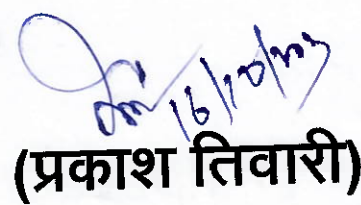 16/10/23
(प्रकाश तिवारी)